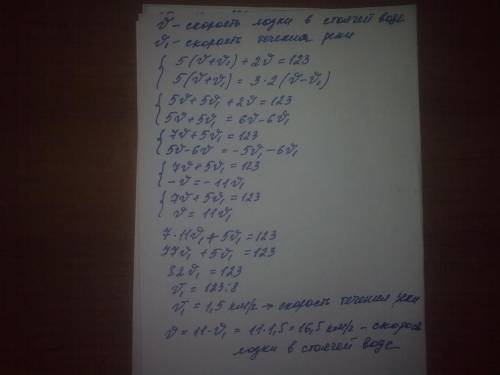 v - скорость лодки в стоячей воде
v₁ - скорость течения реки
{ 5(v+v₁)+2v=123
5(v+v₁)=3·2(v-v₁)
{ 5v+5v₁+2v=123
5v+5v₁=6v-6v₁
{ 7v+5v₁=123
5v-6v=-5v₁-6v₁
{ 7v+5v₁=123
-v=-11v₁
{ 7v+5v₁=123
v=11v₁
7·11v₁+5v₁=123
77v₁+5v₁=123
82v₁=123
v₁=123:8
v₁=1,5 км/ч → скорость течения реки
v=11·v₁=11·1,5=16,5 км/ч - скорос
лодки в стоячей воде